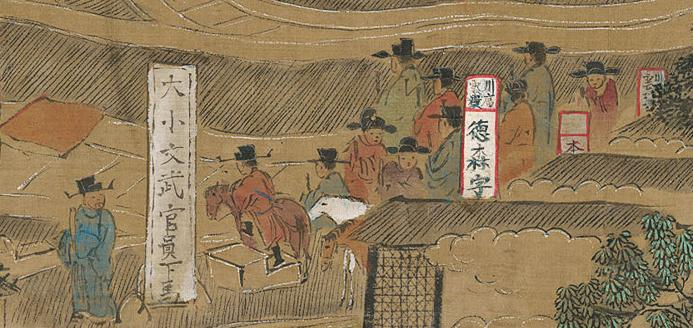 大小文武官員下馬
川廣
德森字
本